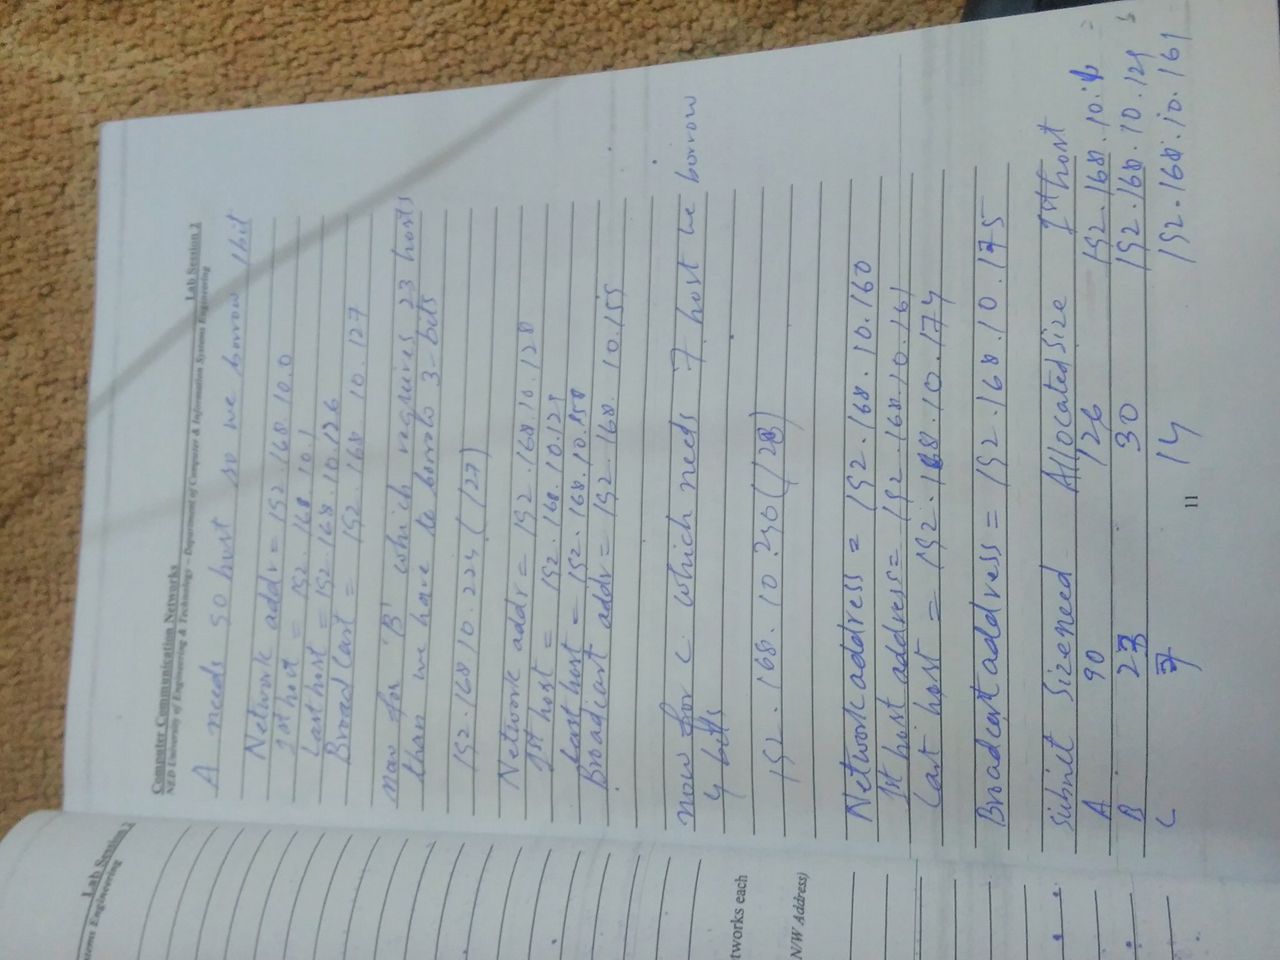 Lab Session 2
stems Engineering
Computer Communication Networks
NED University of Engineering & Technology – Department of Computer & Information Systems Engineering
Lab Session 2
A needs 90 host so we borrow 1 bit
Network addr = 192.168.10.0
1st host = 192.168.10.1
Last host = 192.168.10.126
Broad Cast = 192.168.10.127
now for 'B' which requires 23 hosts
than we have to borrow 3-bits
192.168.10.224 (/27)
Network addr = 192.168.10.128
1st host = 192.168.10.129
Last host = 192.168.10.158
Broadcast addr = 192.168.10.159
now for C which needs 7 host we borrow
4 bits
192.168.10.240 (/28)
tworks each
N/W Address)
Network address = 192.168.10.160
1st host address = 192.168.10.161
Last host = 192.168.10.174
Broadcast address = 192.168.10.175
Subnet Size need Allocated Size 1st host
A 90 126 192.168.10.1
B 23 30 192.168.10.129
C 7 14 192.168.10.161
11